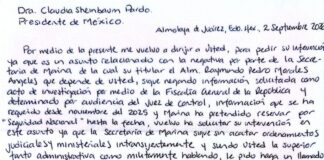 Dra. Claudia Sheinbaum Pardo.
Presidente de México.
Almoloya de Juárez, Edo. Mex., 2 Septiembre
Por medio de la presente me vuelvo a dirigir a Usted, para pedir su información
ya que es un asunto relacionado con la negativa por parte de la Secre-
taría de Marina de la cual su titular el Alm. Raymundo Pedro Morales
Ángeles que depende de Usted, sigue negando información solicitada como
acto de investigación por medio de la Fiscalía General de la República y
determinado por audiencia del Juez de Control, información que se ha
requerido desde noviembre del 2025 y Marina ha pretendido reservar por
"Seguridad Nacional" hasta la fecha, vuelvo ha solicitar su intervención en
este asunto ya que la Secretaría de Marina sigue sin acatar ordenamientos
judiciales y ministeriales intransigentemente y siendo Usted la superior
tanto administrativa como militarmente hablando, le pido haga un llamado